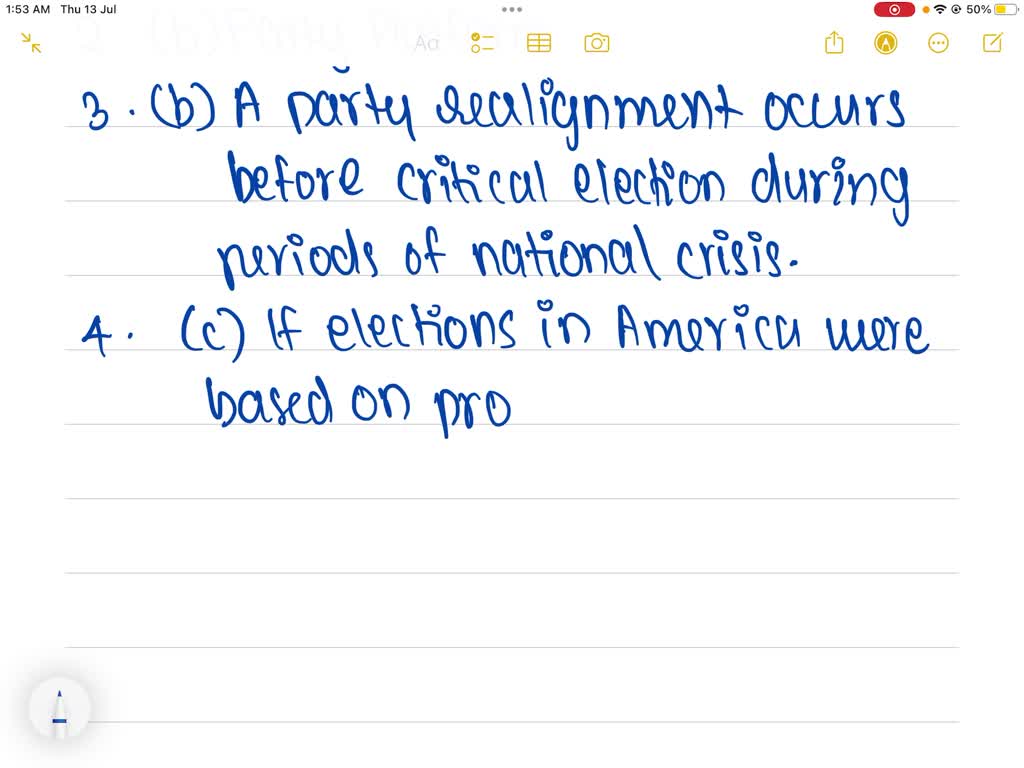 1:53 AM Thu 13 Jul
50%
Aa
3. (b) A party realignment occurs
before critical election during
periods of national crisis.
4. (c) If elections in America were
based on pro